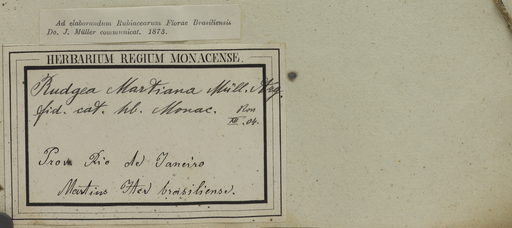 Ad elaborandum Rubiacearum Florae Brasiliensis
Do. J. Müller communicat. 1873.
HERBARIUM REGIUM MONACENSE.
Rudgea Martiana Müll. Arg.
fid. cat. hb. Monac.
XII. 04.
Prov. Rio de Janeiro
Martius Iter brasiliense.